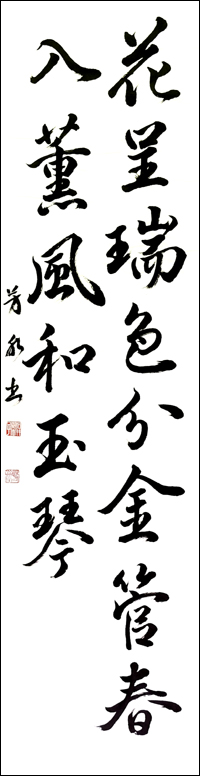 花呈瑞色分金管春
入薰風和玉琴
芳水書